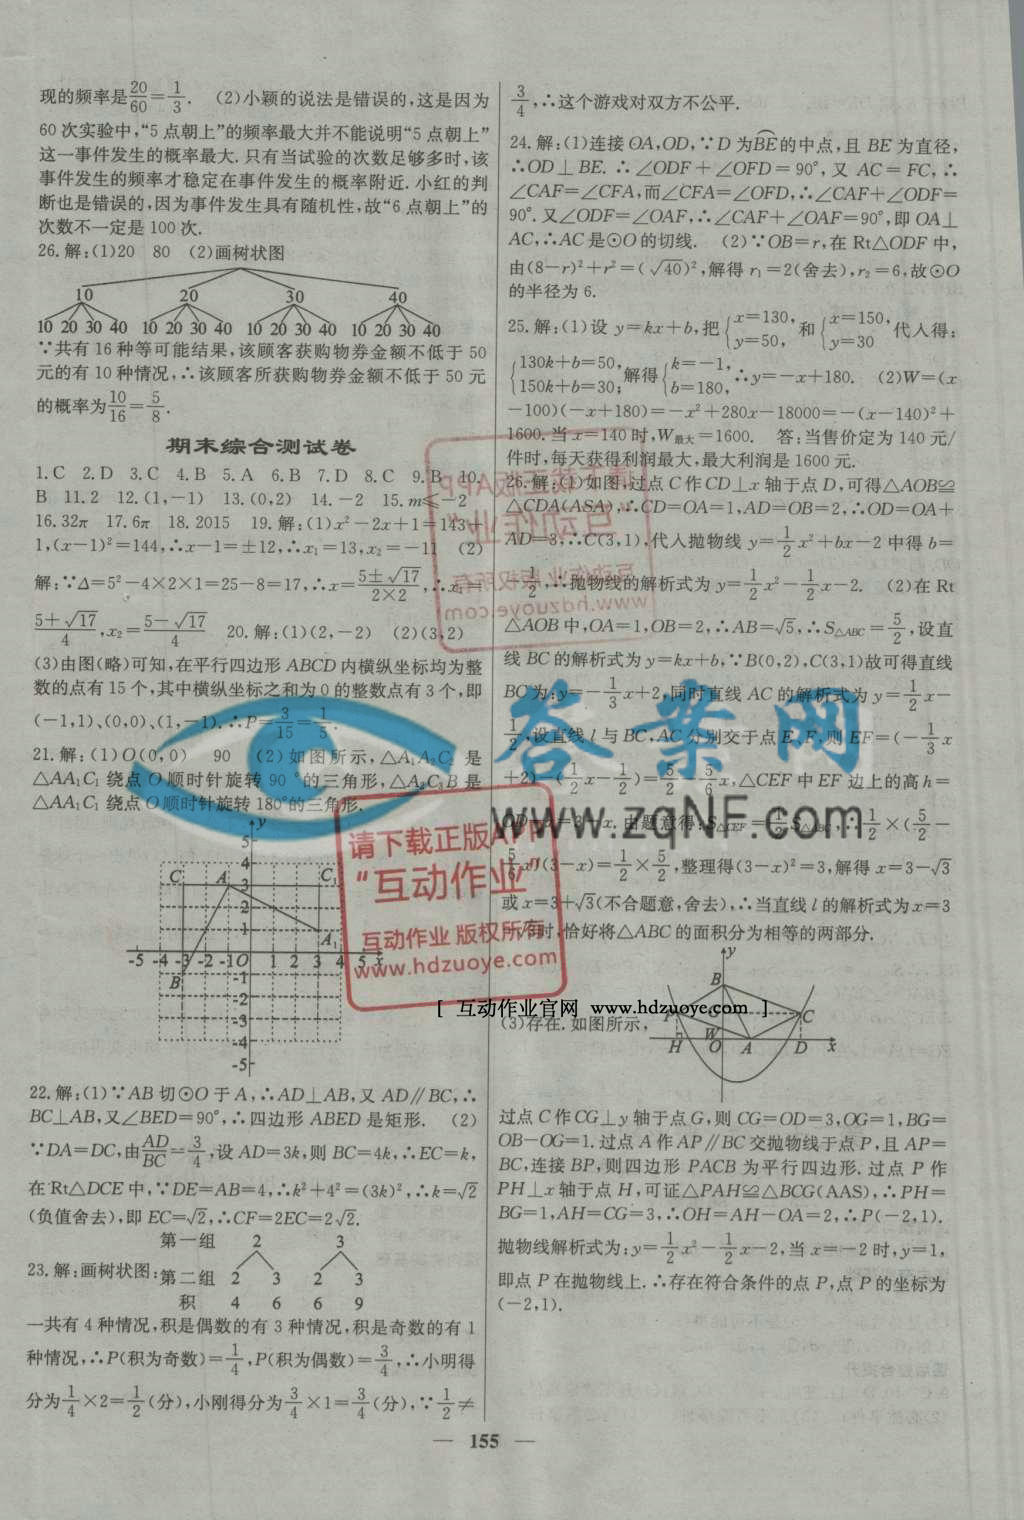 现的频率是20/60=1/3. (2)小颖的说法是错误的,这是因为
60次实验中,“5点朝上”的频率最大并不能说明“5点朝上”
这一事件发生的概率最大. 只有当试验的次数足够多时,该
事件发生的频率才稳定在事件发生的概率附近. 小红的判
断也是错误的,因为事件发生具有随机性,故“6点朝上”的
次数不一定是100次.
26.解:(1)20 80 (2)画树状图
10 20 30 40
10 20 30 40 10 20 30 40 10 20 30 40 10 20 30 40
∵共有16种等可能结果,该顾客获购物券金额不低于50
元的有10种情况,∴该顾客所获购物券金额不低于50元
的概率为10/16=5/8.
期末综合测试卷
1.C 2.D 3.C 4.B 5.A 6.B 7.D 8.C 9.B 10.
B 11.2 12.(1,-1) 13.(0,2) 14.-2 15.m≤-2
16.32π 17.6π 18.2015 19.解:(1)x²-2x+1=143+
1,(x-1)²=144,∴x-1=±12,∴x₁=13,x₂=-11 (2)
解:∵Δ=5²-4×2×1=25-8=17,∴x=(5±√17)/(2×2),∴x₁=
(5+√17)/4,x₂=(5-√17)/4 20.解:(1)(2,-2) (2)(3,2)
(3)由图(略)可知,在平行四边形ABCD内横纵坐标均为整
数的点有15个,其中横纵坐标之和为0的整数点有3个,即
(-1,1)、(0,0)、(1,-1).∴P=3/15=1/5.
21.解:(1)O(0,0) 90 (2)如图所示,△A₁A₂C₂是
△AA₁C₁绕点O顺时针旋转90°的三角形,△A₂C₃B是
△AA₁C₁绕点O顺时针旋转180°的三角形.
y
5
4
C A 3 C₁
2
1 A₁
-5 -4 -3 -2 -1 O 1 2 3 4 5 x
B -1
-2
-3
-4
-5
22.解:(1)∵AB切⊙O于A,∴AD⊥AB,又AD∥BC,∴
BC⊥AB,又∠BED=90°,∴四边形ABED是矩形. (2)
∵DA=DC,由AD/BC=3/4,设AD=3k,则BC=4k,∴EC=k,
在Rt△DCE中,∵DE=AB=4,∴k²+4²=(3k)²,∴k=√2
(负值舍去),即EC=√2,∴CF=2EC=2√2.
第一组 2 3
23.解:画树状图:第二组 2 3 2 3
积 4 6 6 9
一共有4种情况,积是偶数的有3种情况,积是奇数的有1
种情况,∴P(积为奇数)=1/4,P(积为偶数)=3/4,∴小明得
分为1/4×2=1/2(分),小刚得分为3/4×1=3/4(分),∵1/2≠
3/4,∴这个游戏对双方不公平.
24.解:(1)连接OA,OD,∵D为BE的中点,且BE为直径,
∴OD⊥BE. ∴∠ODF+∠OFD=90°,又AC=FC,∴
∠CAF=∠CFA,而∠CFA=∠OFD,∴∠CAF+∠ODF=
90°.又∠ODF=∠OAF,∴∠CAF+∠OAF=90°,即OA⊥
AC,∴AC是⊙O的切线. (2)∵OB=r,在Rt△ODF中,
由(8-r)²+r²=(√40)²,解得r₁=2(舍去),r₂=6,故⊙O
的半径为6.
25.解:(1)设y=kx+b,把{x=130,y=50,和{x=150,y=30代人得:
{130k+b=50,150k+b=30;解得{k=-1,b=180,∴y=-x+180. (2)W=(x
-100)(-x+180)=-x²+280x-18000=-(x-140)²+
1600.当x=140时,W最大=1600. 答:当售价定为140元/
件时,每天获得利润最大,最大利润是1600元.
26.解:(1)如图,过点C作CD⊥x轴于点D,可得△AOB≌
△CDA(ASA),∴CD=OA=1,AD=OB=2,∴OD=OA+
AD=3,∴C(3,1),代人抛物线y=1/2x²+bx-2中得b=
-1/2,∴抛物线的解析式为y=1/2x²-1/2x-2. (2)在Rt
△AOB中,OA=1,OB=2,∴AB=√5,∴S△ABC=5/2,设直
线BC的解析式为y=kx+b,∵B(0,2),C(3,1)故可得直线
BC为:y=-1/3x+2,同时直线AC的解析式为y=1/2x-
1/2,设直线l与BC,AC分别交于点E,F,则EF=(-1/3x
+2)-(1/2x-1/2)=5/2-5/6x,△CEF中EF边上的高h=
OD-x=3-x.由题意得:S△CEF=1/2S△ABC,∴1/2×(5/2-
5/6x)(3-x)=1/2×5/2,整理得(3-x)²=3,解得x=3-√3
或x=3+√3(不合题意,舍去),∴当直线l的解析式为x=3
-√3时,恰好将△ABC的面积分为相等的两部分.
(3)存在.如图所示,
y
B
P G C
W
H O A D x
过点C作CG⊥y轴于点G,则CG=OD=3,OG=1,BG=
OB-OG=1.过点A作AP∥BC交抛物线于点P,且AP=
BC,连接BP,则四边形PACB为平行四边形.过点P作
PH⊥x轴于点H,可证△PAH≌△BCG(AAS),∴PH=
BG=1,AH=CG=3,∴OH=AH-OA=2,∴P(-2,1).
抛物线解析式为:y=1/2x²-1/2x-2,当x=-2时,y=1,
即点P在抛物线上.∴存在符合条件的点P,点P的坐标为
(-2,1).
— 155 —
答案网
www.zqNF.com
请下载正版APP
“互动作业”
互动作业 版权所有
www.hdzuoye.com
[ 互动作业官网 www.hdzuoye.com ]